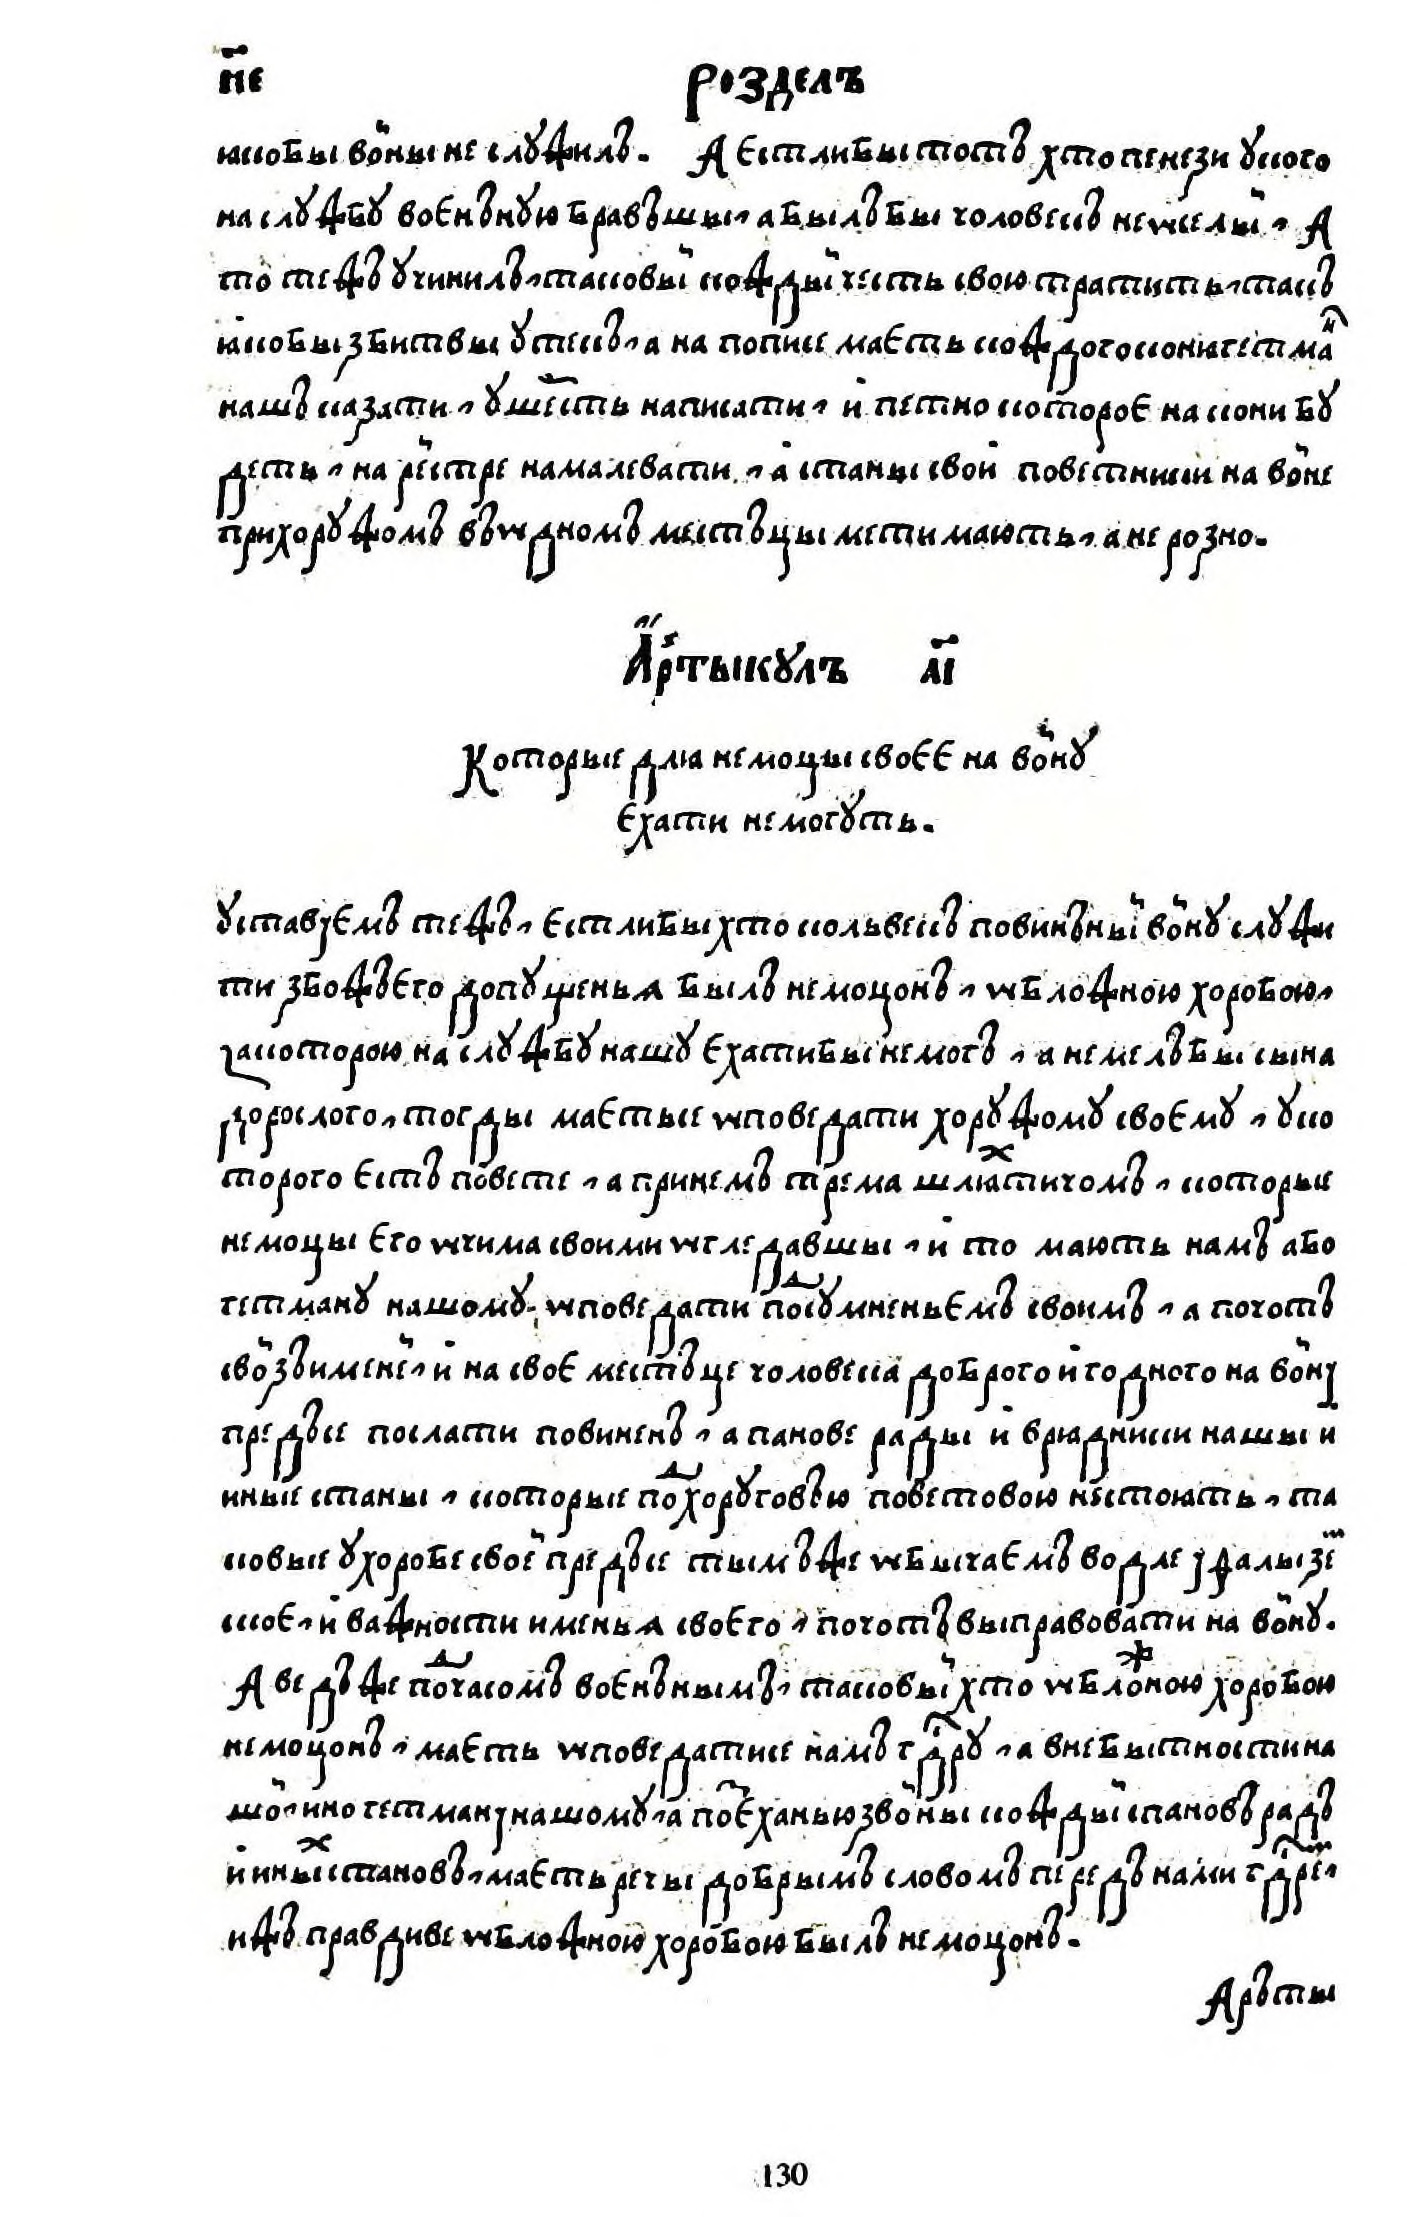 н҃е РОЗДЕЛЪ
ꙗкобы во̆ны не служилъ. А естлибы тотъ хто пенези у кого
на службу военъную бравъшы, а былъ бы чоловекъ неѡселы̆, А
то тежъ учинилъ, таковы̆ кожды̆ честь свою тратить, такъ
ꙗкобы з битвы утекъ, а на пописе маеть кождого кони гетмаⷩ҇
нашъ казати, у шерсть написати, и петно которое на кони бу
деть, на реӗстре намалевати, а станы свои поветники на во̆не
при хоружомъ въ ѡдномъ местъцы мети мають, а не розно.
А҆ртыкулъ а҃і
Которые длꙗ немоцы своее на во̆ну
ехати не могуть.
Уставуемъ тежъ, естлибы хто кольвекъ повинъны̆ во̆ну служи
ти з божъего допущенья былъ немоцонъ, ѡбложною хоробою,
за которою на службу нашу ехати бы не могъ, а не мелъ бы сына
дорослого, тогды маеть се ѡповедати хоружому своему, у ко
торого естъ повете, а при немъ трема шлꙗхтичомъ, которые
немоцы его ѡчима своими ѡгледавшы, и то мають намъ або
гетману нашому ѡповедати под сумненьемъ своимъ, а почотъ
сво̆ зъ именӗ, и на свое местъце чоловека доброго и годного на во̆ну
предъсе послати повиненъ, а панове рады и врꙗдники нашы и
иные станы, которые под хоруговъю поветовою не стоють, та
ковые у хоробе своӗ предъсе тымъ же ѡбычаемъ водле уфалы зеⷨ
ское, и важности именья своего, почотъ выправовати на во̆ну.
А ведъже под часомъ военънымъ, таковы̆ хто ѡбложною хоробою
немоцонъ, маеть ѡповедати се намъ гдⷭ҇ру, а в небытности на
шо̆, ино гетману нашому, а по еханью з во̆ны кожды̆ с пановъ радъ
и иныхъ становъ, маеть речы добрымъ словомъ передъ нами гдⷭ҇реⷨ,
ижъ правдиве ѡбложною хоробою былъ немоцонъ.
Аръты
130